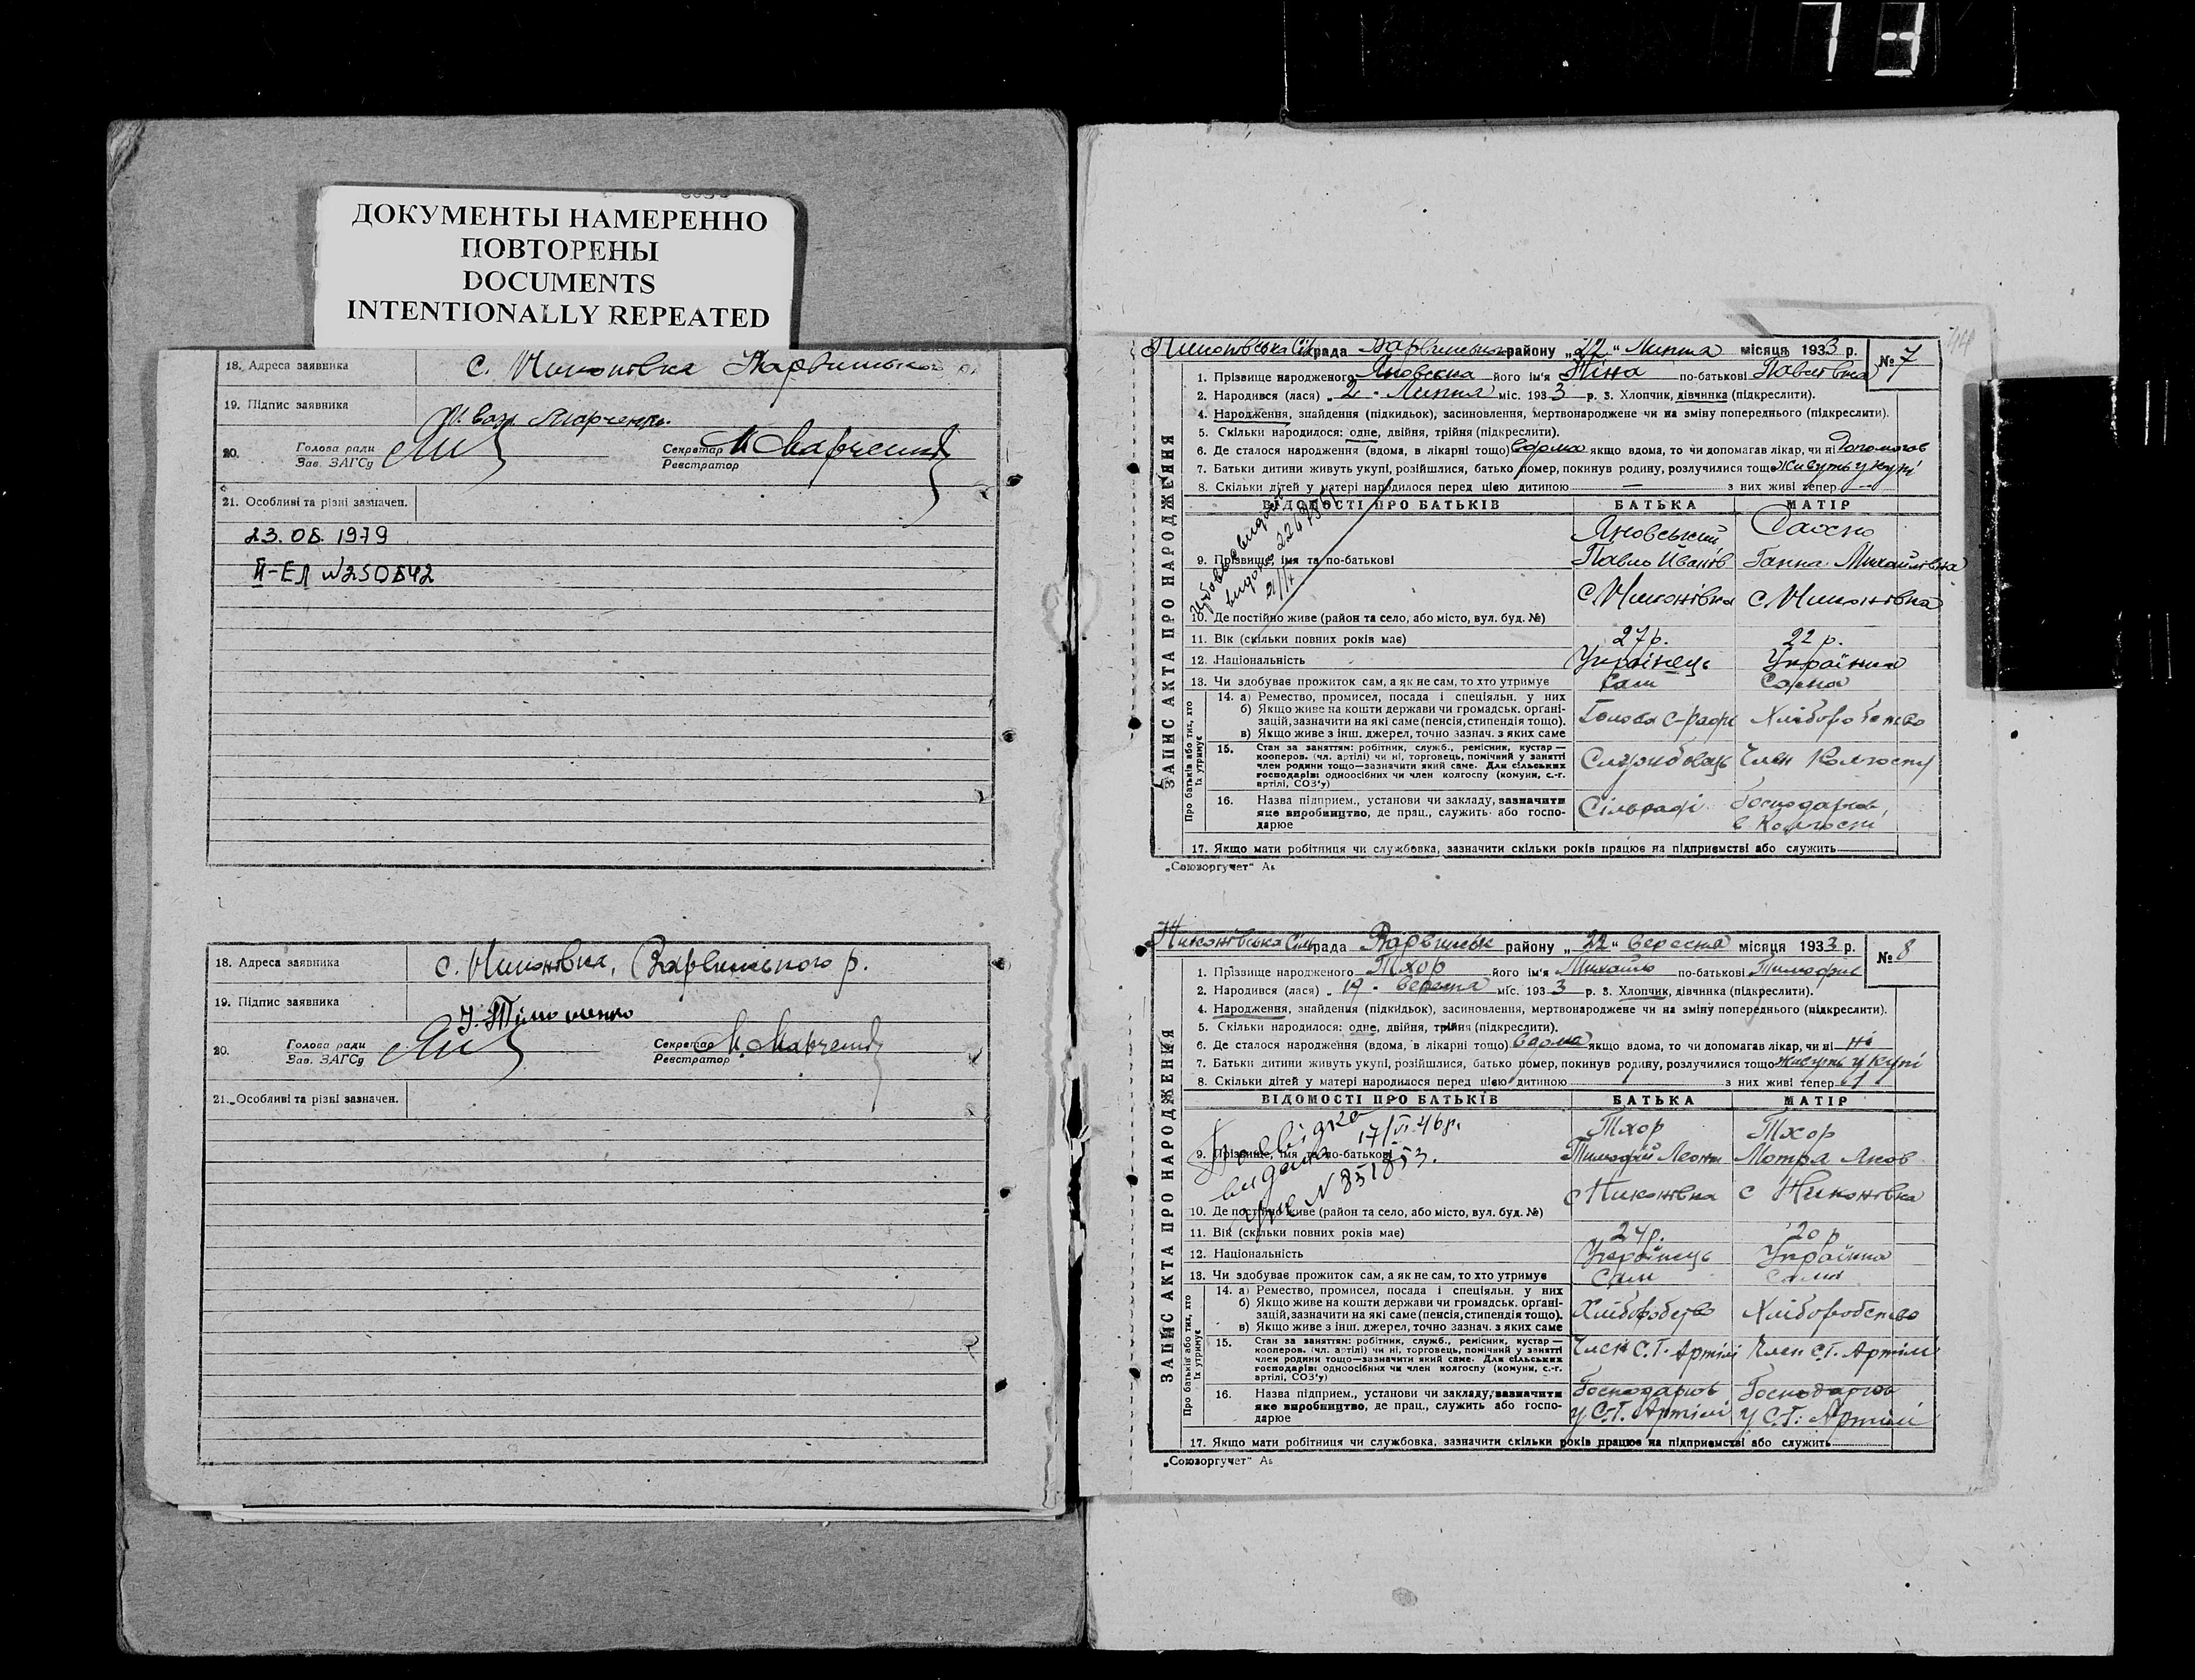 73
ДОКУМЕНТЫ НАМЕРЕННО
ПОВТОРЕНЫ
DOCUMENTS
INTENTIONALLY REPEATED
18. Адреса заявника с. Никонівка Варвинського
19. Підпис заявника Марченко.
20. Голова ради Зав. ЗАГСу Секретар Реєстратор М. Марченко
21. Особливі та різні зазначен.
23.08.1979
II-ЕЛ №250542
18. Адреса заявника с. Никонівка, Варвинського р.
19. Підпис заявника
20. Голова ради Зав. ЗАГСу Секретар Реєстратор М. Марченко
21. Особливі та різні зазначен.
ЗАПИС АКТА ПРО НАРОДЖЕННЯ
Никонівська Сільрада Варвинського району „22“ Липня місяця 1933 р. № 7
1. Прізвище народженого Яновська його ім'я Ніна по-батькові Павлівна
2. Народився (лася) „2“ Липня міс. 1933 р. 3. Хлопчик, дівчинка (підкреслити).
4. Народження, знайдення (підкидьок), засиновлення, мертвонароджене чи на зміну попереднього (підкреслити).
5. Скільки народилося: одне, двійня, трійня (підкреслити).
6. Де сталося народження (вдома, в лікарні тощо) вдома якщо вдома, то чи допомагав лікар, чи ні допомогав
7. Батьки дитини живуть укупі, розійшлися, батько помер, покинув родину, розлучилися тощо живуть у купі
8. Скільки дітей у матері народилося перед цією дитиною — з них живі тепер —
ВІДОМОСТІ ПРО БАТЬКІВ БАТЬКА МАТІР
9. Прізвище, імя та по-батькові Яновський Павло Іванів Сахно Ганна Михайлівна
10. Де постійно живе (район та село, або місто, вул. буд. №) с. Никонівка с. Никонівка
11. Вік (скільки повних років має) 27 р. 22 р.
12. Національність Українець Українка
13. Чи здобуває прожиток сам, а як не сам, то хто утримує Сам Сама
Про батьків або тих, хто їх утримує
14. а) Ремество, промисел, посада і спеціяльн. у них
б) Якщо живе на кошти держави чи громадськ. органі-
зацій, зазначити на які саме (пенсія, стипендія тощо).
в) Якщо живе з інш. джерел, точно зазнач. з яких саме
Голова С-ради Хліборобство
15. Стан за заняттям: робітник, служб., ремісник, кустар —
кооперов. (чл. артілі) чи ні, торговець, помічний у занятті
член родини тощо—зазначити який саме. Для сільських
господарів: одноосібних чи член колгоспу (комуни, с.-г.
артілі, СОЗ'у)
Службовець Член Колгоспу
16. Назва підприєм., установи чи закладу, зазначити
яке виробництво, де прац., служить або госпо-
дарює
Сільраді Господарює в Колгоспі
17. Якщо мати робітниця чи службовка, зазначити скільки років працює на підприємстві або служить
„Союзоргучет“
ЗАПИС АКТА ПРО НАРОДЖЕННЯ
Никонівська Сільрада Варвинськ району „22“ вересня місяця 1933 р. № 8
1. Прізвище народженого Тхор його ім'я Михайло по-батькові Тимофіїв
2. Народився (лася) „19“ вересня міс. 1933 р. 3. Хлопчик, дівчинка (підкреслити).
4. Народження, знайдення (підкидьок), засиновлення, мертвонароджене чи на зміну попереднього (підкреслити).
5. Скільки народилося: одне, двійня, трійня (підкреслити).
6. Де сталося народження (вдома, в лікарні тощо) вдома якщо вдома, то чи допомагав лікар, чи ні ні
7. Батьки дитини живуть укупі, розійшлися, батько помер, покинув родину, розлучилися тощо живуть у купі
8. Скільки дітей у матері народилося перед цією дитиною з них живі тепер 1
ВІДОМОСТІ ПРО БАТЬКІВ БАТЬКА МАТІР
17/VI 46 р.
видана
№ 851853.
9. Прізвище, імя та по-батькові Тхор Тимофій Тхор Мотря Яков
10. Де постійно живе (район та село, або місто, вул. буд. №) с Никонівка с Никонівка
11. Вік (скільки повних років має) 24 р. 20 р
12. Національність Українець Українка
13. Чи здобуває прожиток сам, а як не сам, то хто утримує Сам Сама
Про батьків або тих, хто їх утримує
14. а) Ремество, промисел, посада і спеціяльн. у них
б) Якщо живе на кошти держави чи громадськ. органі-
зацій, зазначити на які саме (пенсія, стипендія тощо).
в) Якщо живе з інш. джерел, точно зазнач. з яких саме
Хліборобство Хліборобство
15. Стан за заняттям: робітник, служб., ремісник, кустар —
кооперов. (чл. артілі) чи ні, торговець, помічний у занятті
член родини тощо—зазначити який саме. Для сільських
господарів: одноосібних чи член колгоспу (комуни, с.-г.
артілі, СОЗ'у)
Член С.Г. Артілі Член С.Г. Артілі
16. Назва підприєм., установи чи закладу, зазначити
яке виробництво, де прац., служить або госпо-
дарює
Господарює у С.Г. Артілі Господарює у С.Г. Артілі
17. Якщо мати робітниця чи службовка, зазначити скільки років працює на підприємстві або служить
„Союзоргучет“